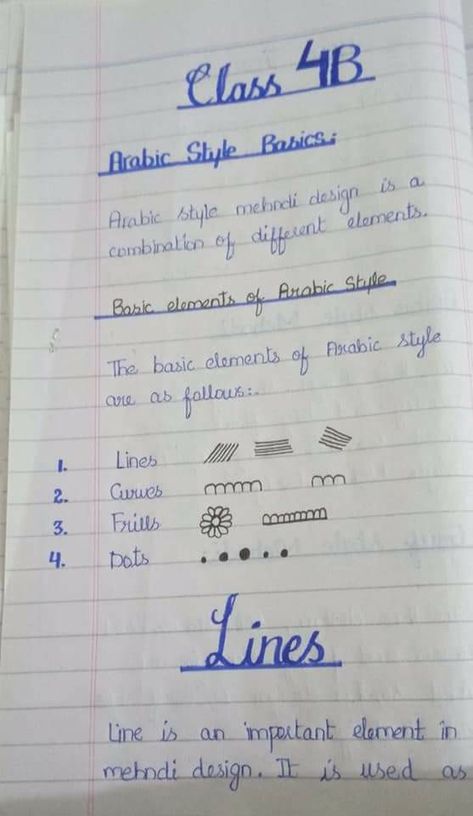 Class 4B
Arabic Style Basics:
Arabic style mehndi design is a
combination of different elements.
Basic elements of Arabic Style
The basic elements of Arabic style
are as follows:-
1. Lines
2. Curves
3. Frills
4. Dots
Lines
Line is an important element in
mehndi design. It is used as